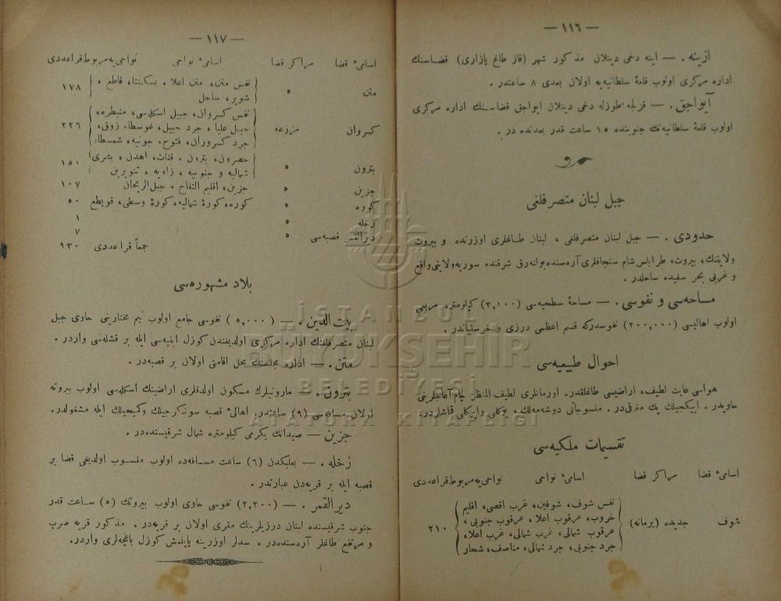 — ١١٦ —
ازینه . — اینه دخی دینلان مذکور شهر (قاز طاغ پازاری) قضاسنك
اداره مرکزی اولوب قلعهٔ سلطانیه‌یه اولان بعدی ٨ ساعتدر .
آیواجق . — قزلجه طوزله دخی دینلان ایواجق قضاسنك اداره مرکزی
اولوب قلعهٔ سلطانیه‌نك جنوبنده ١٥ ساعت قدر بعدنده در .
جبل لبنان متصرفلغی
حدودی . — جبل لبنان متصرفلغی ، لبنان طاغلری اوزرنده و بیروت
ولایتنك ، بیروت، طرابلس شام سنجاقلری آره‌سنده بولنه‌رق شرقنده سوریه ولایتی واقع
و غربی بحر سفیده ساحلدر .
مساحه‌سی و نفوسی . — مساحهٔ سطحیه‌سی (٣,١٠٠) کیلومتره مربعی
اولوب اهالیسی (٢٠٠,٠٠٠) نفوسدرکه قسم اعظمی درزی و خرستیاندر .
احوال طبیعیه‌سی
هواسی غایت لطیف، اراضیسی طاغلقدر. اورمانلری لطیف المنظر چام آغاجلرینی
حاویدر . ایپکجیلك پك مترقی‌در . منسوجاتی دوشمه‌لك، یوکلی وایپکلی قماشلردر.
تقسیمات ملکیه‌سی
اسامیٔ قضا مراکز قضا اسامیٔ نواحی نواحی‌یه مربوط قراعددی
شوف جدیده (یرمانه) نفس شوف، شوفین، غرب اقصی، اقلیم
خروب، عرقوب اعلا، عرقوب جنوبی، ٢١٠
عرقوب شمالی، غرب شمالی، غرب اعلا،
جرد جنوبی، جرد شمالی، مناصف، شحار
— ١١٧ —
اسامیٔ قضا مراکز قضا اسامیٔ نواحی نواحی‌یه مربوط قراعددی
متن » نفس متن، متن اعلا، بسکنتا، قاطع، ١٧٨
شویر، ساحل
نفس کسروان، جبیل اسکله‌سی، منیطره،
کسروان مزرعه جبیل علیا، جرد جبیل، غوسطا، زوق، ٢٢٦
جرد کسروان، فتوح، جونیه، شمسطار
بترون » حصرون، بترون، قنات، اهدن، بشری ١٥١
شمالیه و جنوبیه، زاویه، تنورین
جزین » جزین، اقلیم التفاح، جبل الریحان ١٠٧
کوره » کوره، کورهٔ شمالیه، کورهٔ وسطی، قویطع ٥٠
زحله » ١
دیرالقمر قصبه‌سی » ٧
جمعاً قراعددی ٩٣٠
بلاد مشهوره‌سی
بیت الدین. — (٥,٠٠٠) نفوسی جامع اولوب نیم مختاریتی حاوی جبل
لبنان متصرفلغنك اداره مرکزی اولدیغندن کوزل ابنیه‌سی ایله بر قشله‌سی واردر.
متن . — اداره مجلسنك محل اقامتی اولان بر قصبه‌در .
بترون . — مارونیلرك مسکون اولدقلری اراضینك اسکله‌سی اولوب بیروته
اولان مسافه‌سی (٩) ساعتدر. اهالیٔ قصبه سونکرجیلك وکمیجیلك ایله مشغولدر.
جزین — صیدانك یکرمی کیلومتره شمال شرقیسنده‌در .
زحله . — بعلبکدن (٦) ساعت مسافه‌ده اولوب منسوب اولدیغی قضا بر
قصبه ایله بر قریه‌دن عبارتدر .
دیرالقمر . — (٢,٢٠٠) نفوسی حاوی اولوب بیروتك (٥) ساعت قدر
جنوب شرقیسنده لبنان درزیلرینك مقری اولان بر قریه‌در . مذکور قریه صرپ
و مرتفع طاغلر آره‌سنده‌در . سدلر اوزرینه یاپلمش کوزل باغچه‌لری واردر.
İSTANBUL
BÜYÜKŞEHİR
BELEDİYESİ
ATATÜRK KİTAPLIĞI